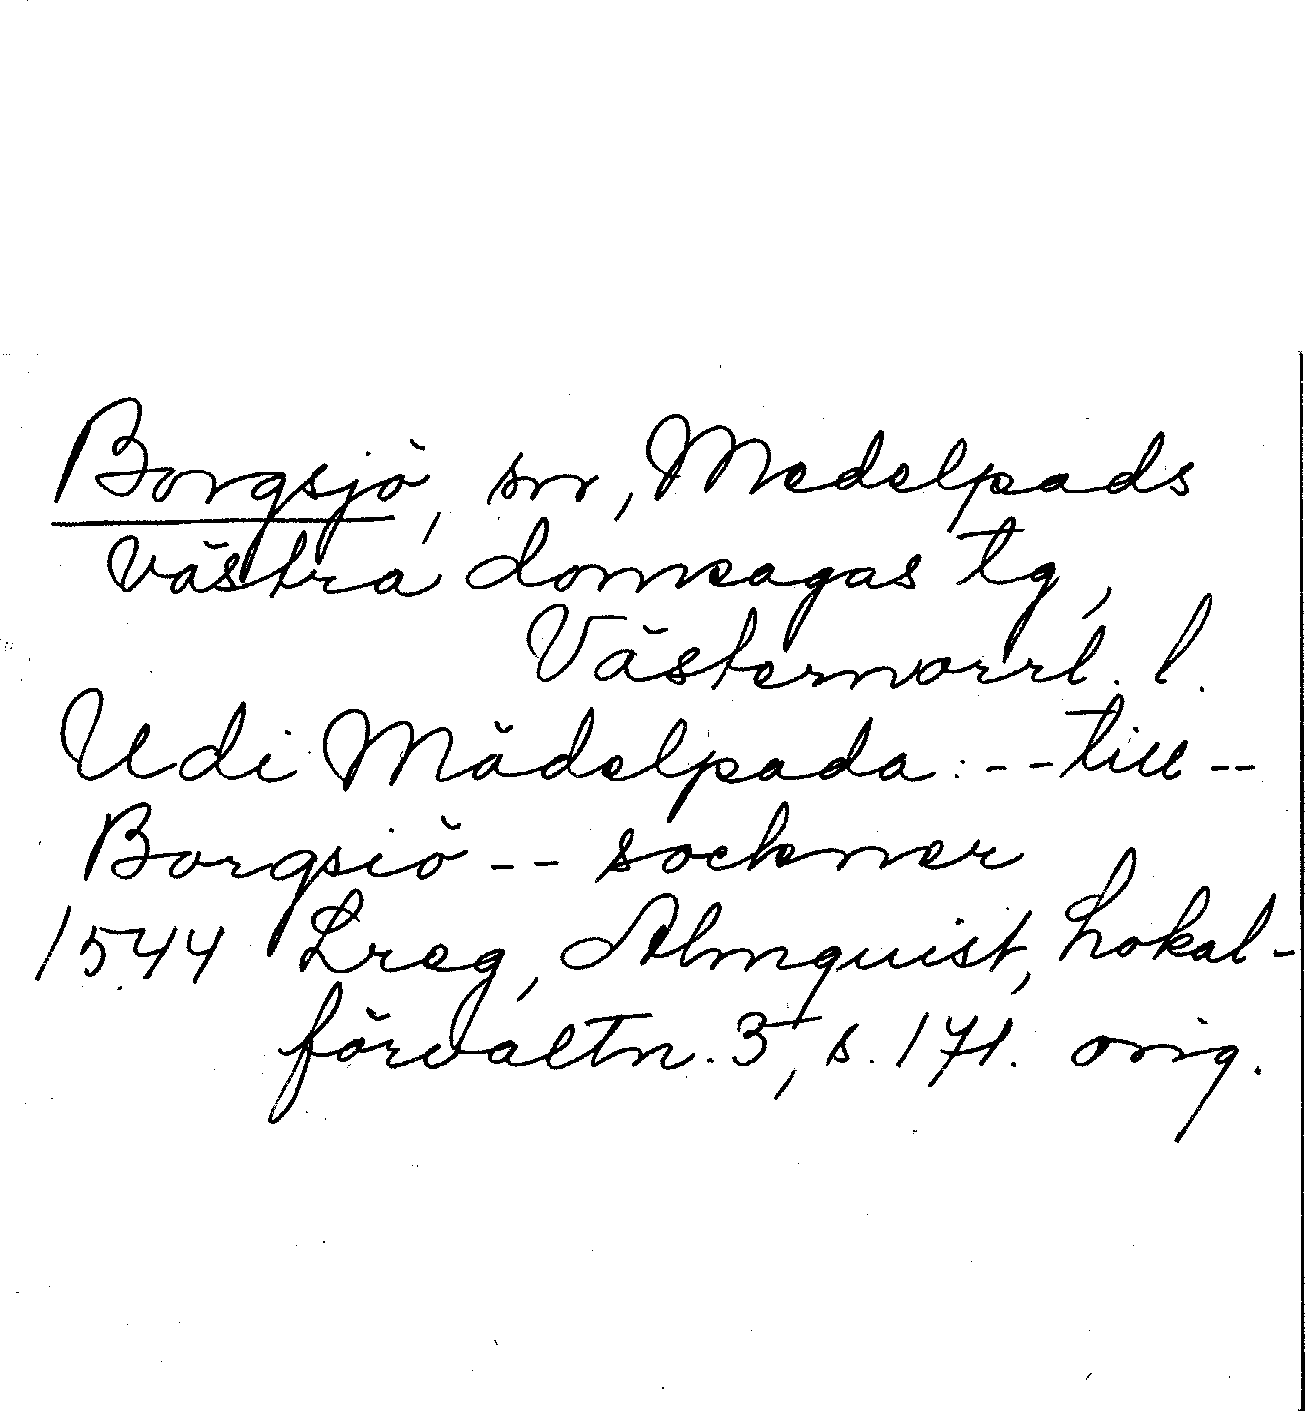 Borgsjö, sn, Medelpads
västra domsagas tg,
Västernorrl. l.
Udi Mädelpada: -- till --
Borgsiö -- sockner
1544 Lreg, Almquist, Lokal-
förvaltn. 3, s. 171. orig.